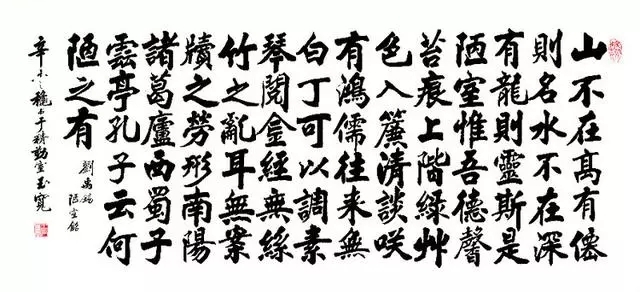 山不在高有僊
則名水不在深
有龍則靈斯是
陋室惟吾德馨
苔痕上階綠艸
色入簾清談咲
有鴻儒往来無
白丁可以調素
琴閱金經無絲
竹之亂耳無案
牘之勞形南陽
諸葛廬西蜀子
雲亭孔子云何
陋之有
劉禹錫
陋室銘
辛 之龝 于精勤室玉寬